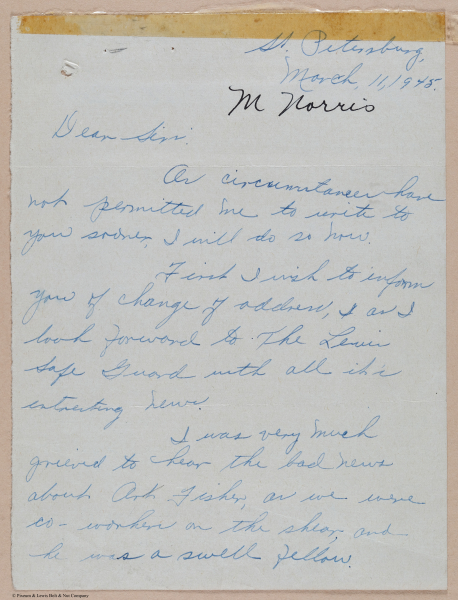 St. Petersburg,
March, 11, 1945.
M Norris
Dear Sir:
As circumstances have
not permitted me to write to
you sooner, I will do so now.
First I wish to inform
you of change of address, I as I
look forward to The Lewis
Safe Guard with all it's
intresting news.
I was very much
grieved to hear the bad news
about Art Fisher, as we were
co-workers on the shear, and
he was a swell fellow.
© Pearson & Lewis Bolt & Nut Company